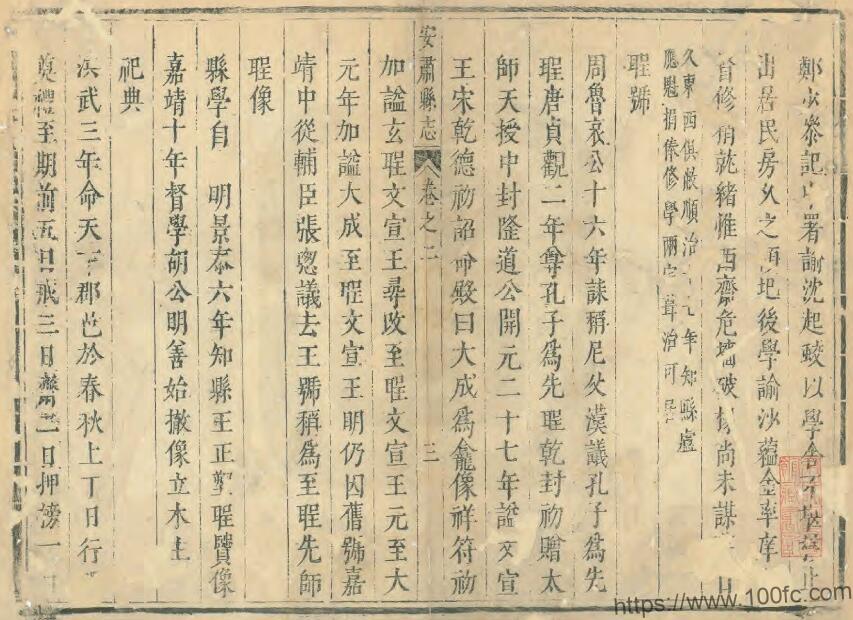 鄭永泰記 署諭沈起蛟以學舍
出居民房久之 圯後學諭沙蘊金率
修稍就緒惟西齋危墻破 尚未謀 日
久東西俱敝順治 元年知縣盧
應魁捐俸修學兩 葺治可居
聖號
周魯哀公十六年誄稱尼父漢議孔子為先
聖唐貞觀二年尊孔子為先聖乾封初贈太
師天授中封隆道公開元二十七年諡文宣
王宋乾德初詔命殿曰大成為龕像祥符初
安肅縣志 卷之二 三
加諡玄聖文宣王尋改至聖文宣王元至大
元年加諡大成至聖文宣王明仍因舊號嘉
靖中從輔臣張璁議去王號稱為至聖先師
聖像
縣學自 明景泰六年知縣王正塑聖賢像
嘉靖十年督學胡公明善始撤像立木主
祀典
洪武三年命天下郡邑於春秋上丁日行
奠禮至期前五日戒三日齋二日押榜一日
https://www.100fc.com